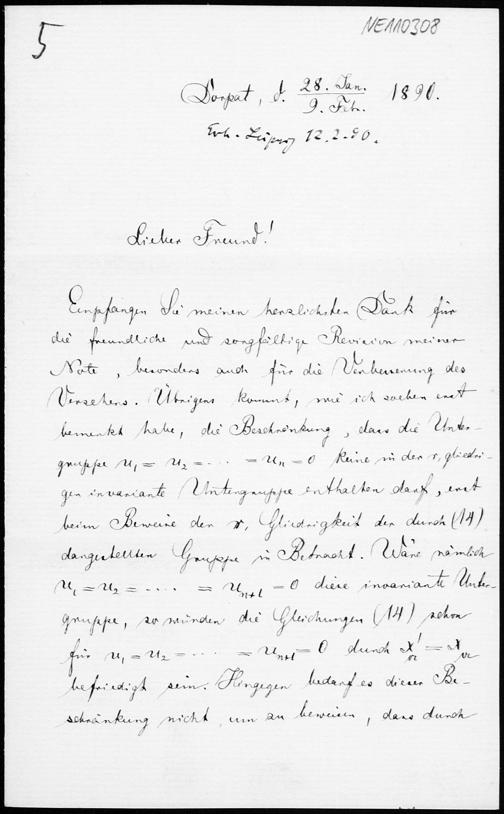 5
NE110308
Dorpat, d. 28. Jan. / 9. Febr. 1890.
Erh. Leipzig 12.2.90.
Lieber Freund!
Empfangen Sie meinen herzlichsten Dank für
die freundliche und sorgfältige Revision meiner
Note, besonders auch für die Verbesserung des
Versehens. Übrigens kommt, wie ich soeben erst
bemerkt habe, die Beschränkung, dass die Unter-
gruppe u₁ = u₂ = ..... = uₙ = 0 keine in der r, gliedri-
gen invariante Untergruppe enthalten darf, erst
beim Beweise der r, Gliedrigkeit der durch (14)
dargestellten Gruppe in Betracht. Wäre nämlich
u₁ = u₂ = ..... = uₙ₊₁ = 0 diese invariante Unter-
gruppe, so würden die Gleichungen (14) schon
für u₁ = u₂ = ..... = uₙ₊₁ = 0 durch
befriedigt sein. Hingegen bedarf es dieser Be-
schränkung nicht, um zu beweisen, dass durch